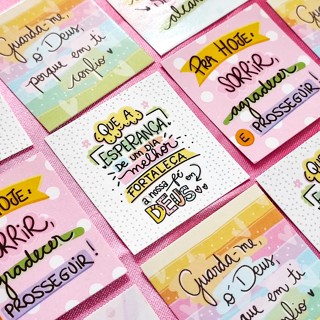 Guarda-me,
ó Deus,
porque em ti
confio
alcan
PRA HOJE:
SORRIR,
agradecer
E PROSSEGUIR!
QUE A
ESPERANÇA
DE um DIA
melhor
FORTALEÇA
a nossa fé em
DEUS
HOJE:
ORRIR,
gradecer
PROSSEGUIR!
Guarda-me,
ó Deus,
porque em ti
confio